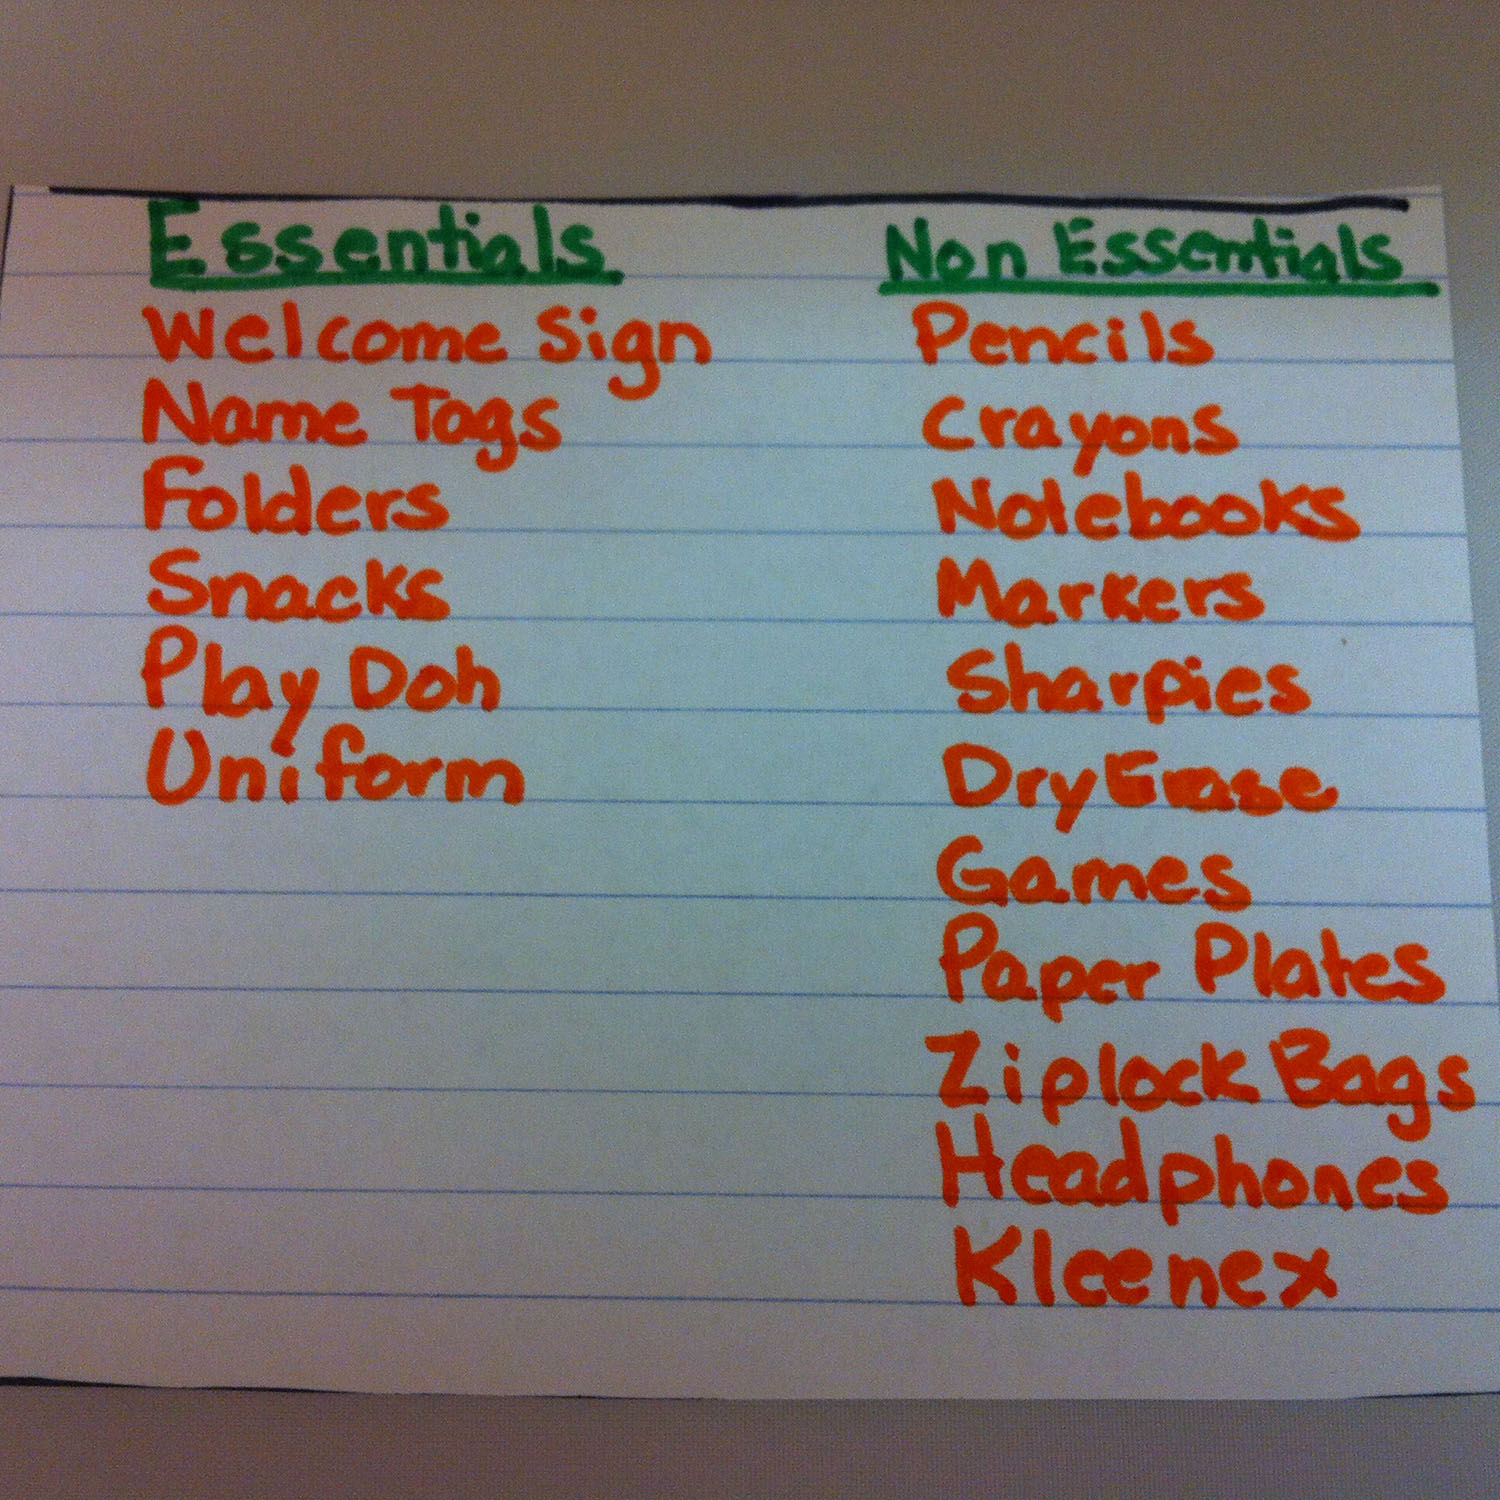 Essentials
Welcome Sign
Name Tags
Folders
Snacks
Play Doh
Uniform
Non Essentials
Pencils
Crayons
Notebooks
Markers
Sharpies
Dry Erase
Games
Paper Plates
Ziplock Bags
Headphones
Kleenex